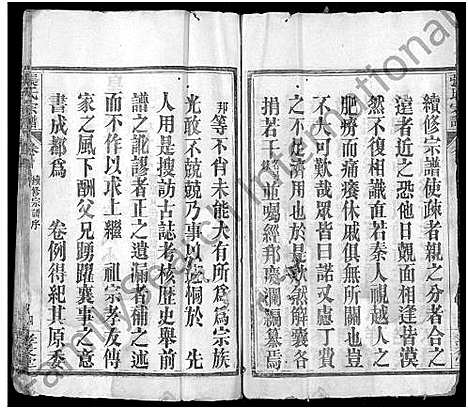 續修宗譜使疎者親之分者合之
遠者近之恐他日覿面相逢皆漠
然不復相識直若秦人視越人之
肥瘠而痛癢休戚俱無所關也豈
不大可歎耶衆皆曰諾但事非財
之不足濟用也於是欣然解囊各
捐若干並囑經邦慶瀾編纂焉
邦等不肖未能大有所為為宗族
光敢不兢兢乃事以遠恫於 先
人用是搜訪古誌考核歷史舉前
譜之訛謬者正之遺漏者補之述
而不作以求上繼 祖宗孝友傳
家之風下酬父兄踴躍襄事之
書成都為 卷例得紀其原委
張氏宗譜
續修宗譜序
Family Search International